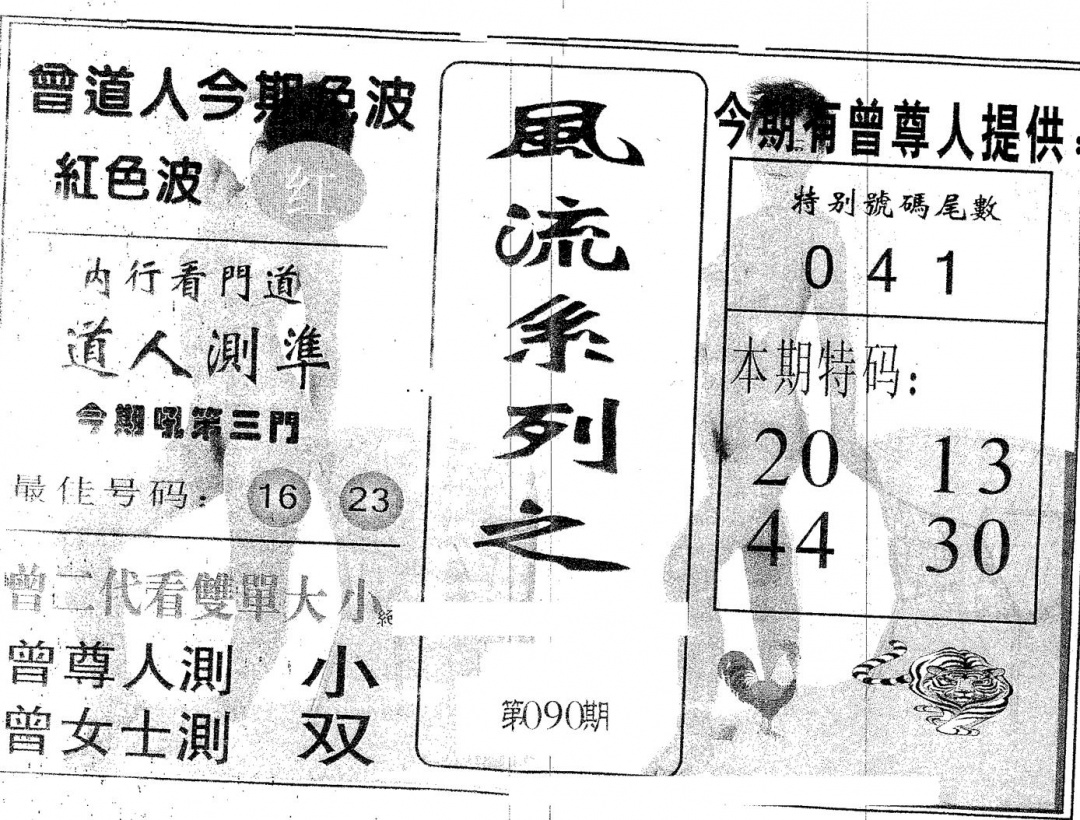 曾道人今期色波
紅色波
红
内行看門道
道人測準
今期吼第三門
最佳号码：
16
23
曾二代看雙單大小
曾尊人測 小
曾女士測 双
風流系列之
第090期
今期有曾尊人提供：
特别號碼尾數
0 4 1
本期特码：
20 13
44 30